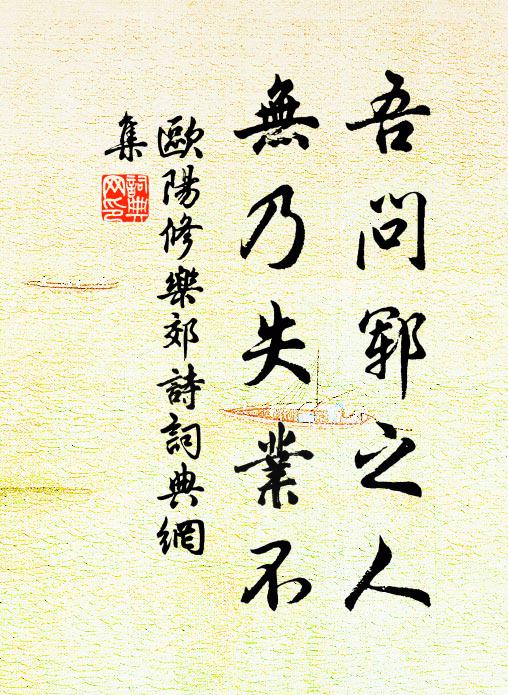 吾問鄆之人
無乃失業不
歐陽修樂郊詩詞典網
集
詞典
网印